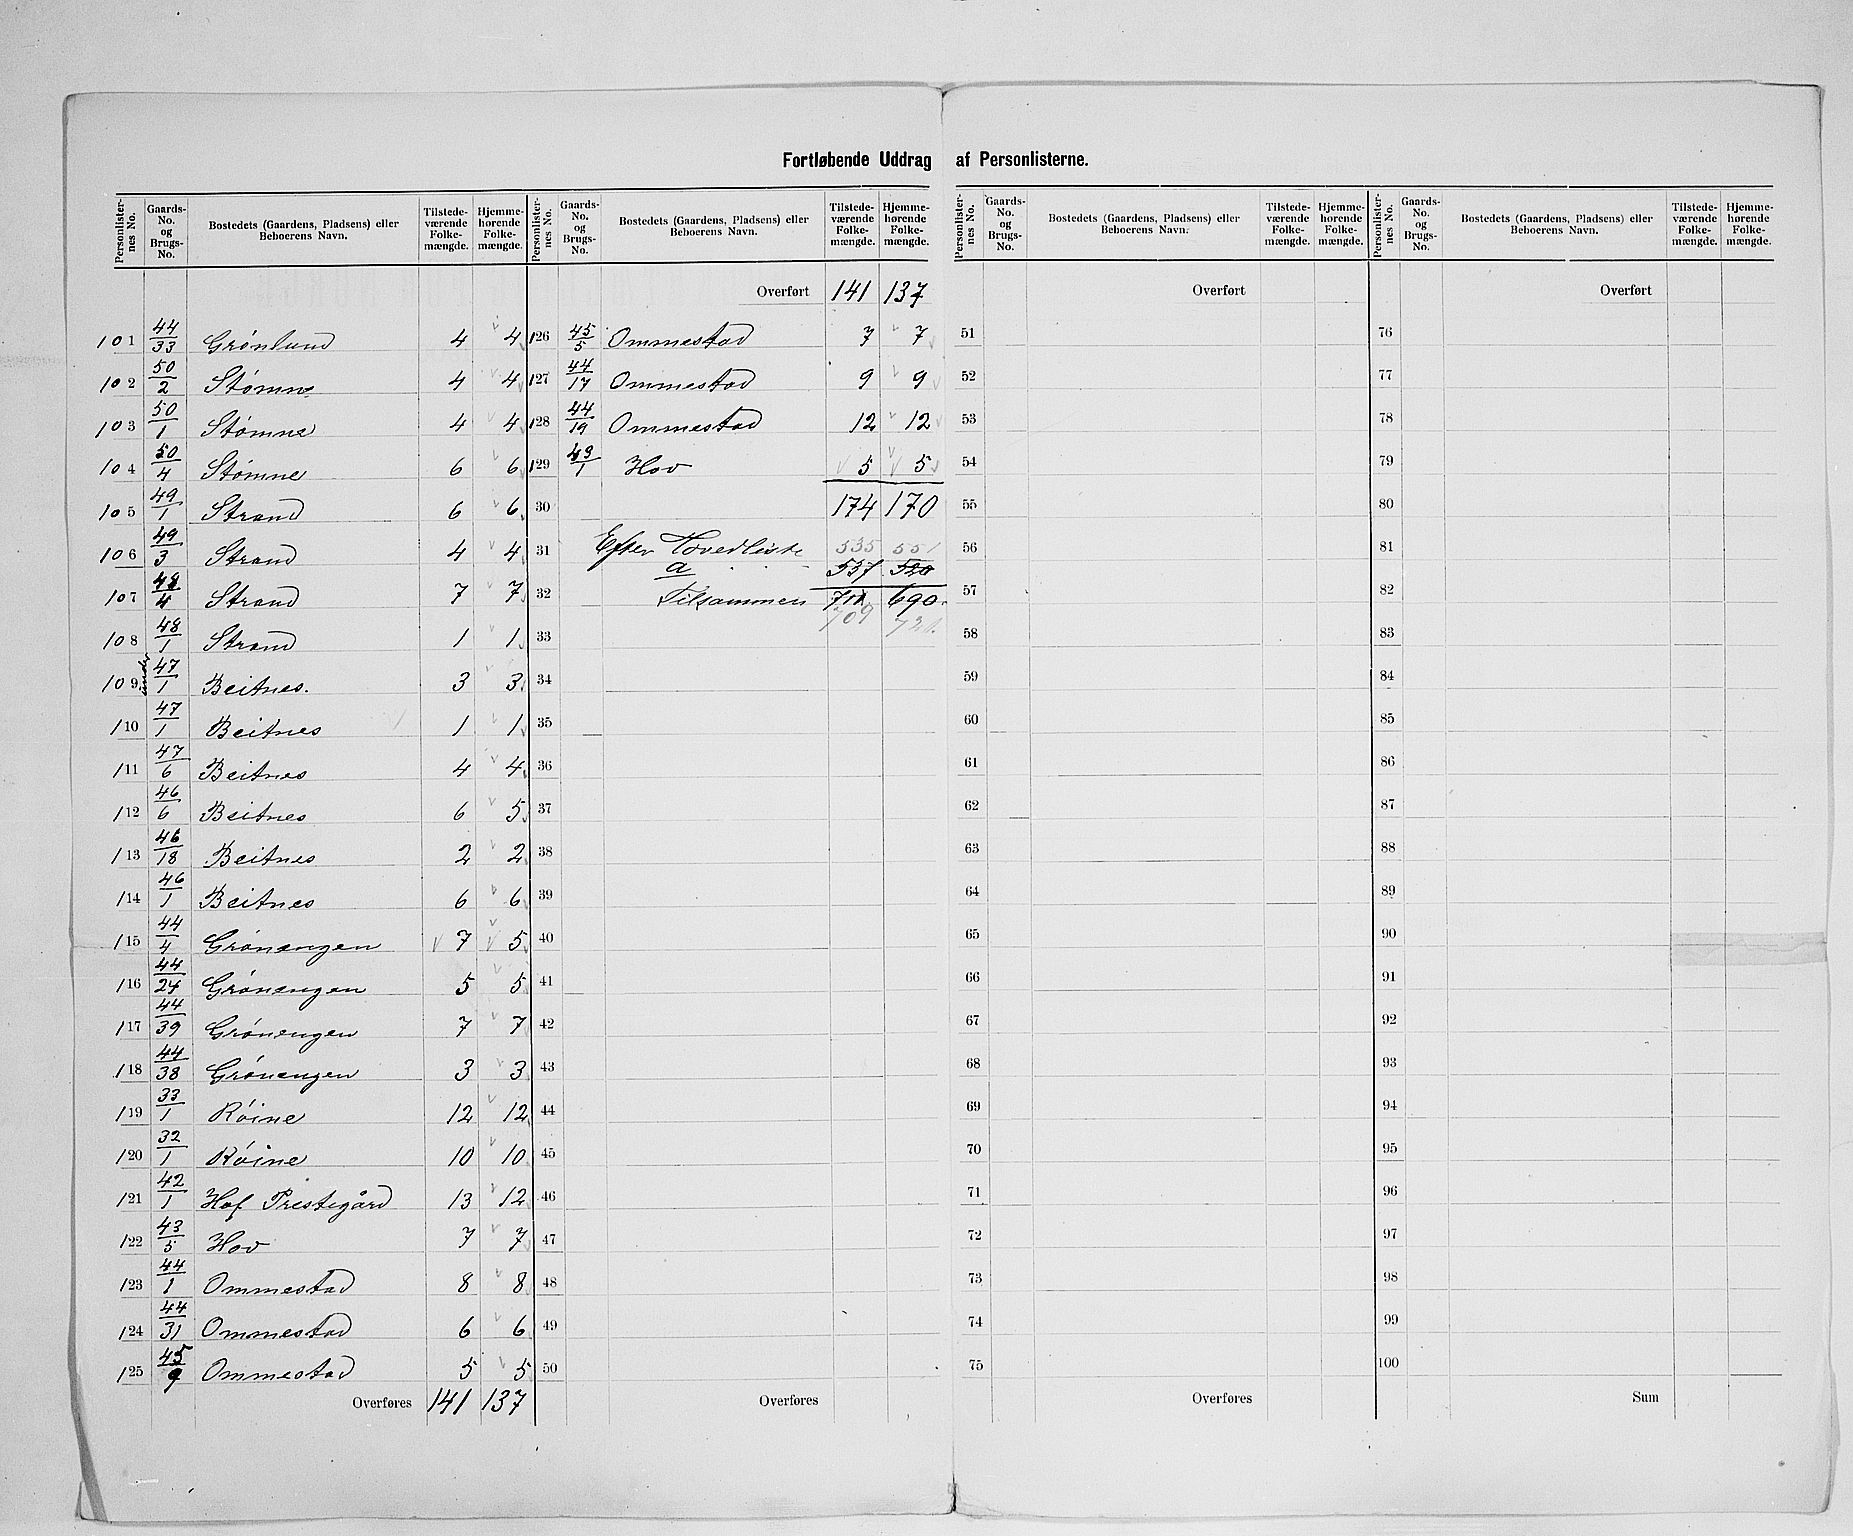 Fortløbende Uddrag af Personlisterne.
Personlister-nes No. | Gaards-No. og Brugs-No. | Bostedets (Gaardens, Pladsens) eller Beboerens Navn. | Tilstede-værende Folke-mængde. | Hjemme-hørende Folke-mængde.
101 44/33 Grønlund 4 4
102 50/2 Stømne 4 4
103 50/1 Stømne 4 4
104 50/4 Stømne 6 6
105 49/1 Strand 6 6
106 49/3 Strand 4 4
107 48/4 Strand 7 7
108 48/1 Strand 1 1
109 under 47/1 Beitnes. 3 3
110 47/1 Beitnes 1 1
111 47/6 Beitnes 4 4
112 46/6 Beitnes 6 5
113 46/18 Beitnes 2 2
114 46/1 Beitnes 6 6
115 44/4 Grónengen 7 5
116 44/24 Grónengen 5 5
117 44/39 Grónengen 7 7
118 44/38 Grónengen 3 3
119 33/1 Róine 12 12
120 32/1 Róine 10 10
121 42/1 Hof Prestegård 13 12
122 43/5 Hov 7 7
123 44/1 Ommestad 8 8
124 44/31 Ommestad 6 6
125 45/9 Ommestad 5 5
Overføres 141 137
Personlister-nes No. | Gaards-No. og Brugs-No. | Bostedets (Gaardens, Pladsens) eller Beboerens Navn. | Tilstede-værende Folke-mængde. | Hjemme-hørende Folke-mængde.
Overført 141 137
126 45/5 Ommestad 7 7
127 44/17 Ommestad 9 9
128 44/19 Ommestad 12 12
129 43/1 Hov 5 5
30 174 170
31 Efter Hovedliste 535 551
a 537 520
32 Tilsammen 711 690
709 721.
33
34
35
36
37
38
39
40
41
42
43
44
45
46
47
48
49
50
Overføres
Personlister-nes No. | Gaards-No. og Brugs-No. | Bostedets (Gaardens, Pladsens) eller Beboerens Navn. | Tilstede-værende Folke-mængde. | Hjemme-hørende Folke-mængde.
Overført
51
52
53
54
55
56
57
58
59
60
61
62
63
64
65
66
67
68
69
70
71
72
73
74
75
Overføres
Personlister-nes No. | Gaards-No. og Brugs-No. | Bostedets (Gaardens, Pladsens) eller Beboerens Navn. | Tilstede-værende Folke-mængde. | Hjemme-hørende Folke-mængde.
Overført
76
77
78
79
80
81
82
83
84
85
86
87
88
89
90
91
92
93
94
95
96
97
98
99
100
Sum